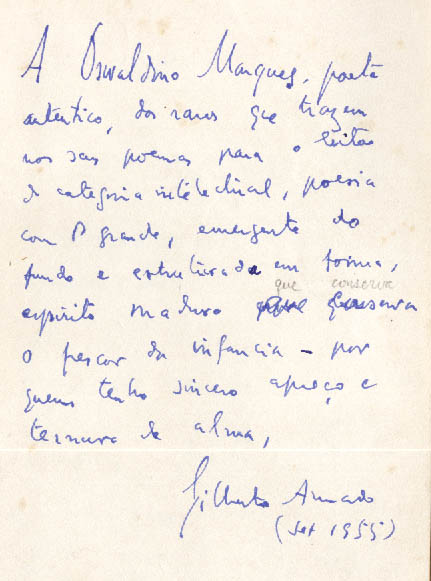 A Oswaldino Marques, poeta
autentico, dos raros que trazem
nos seus poemas para o leitor
de categoria intelectual, poesia
com P grande, emergente do
fundo e estruturada em forma,
que conserva
espirito maduro que conserva
o frescor da infancia – por
quem tenho sincero apreço e
ternura de alma,
Gilberto Amado
(set 1955)